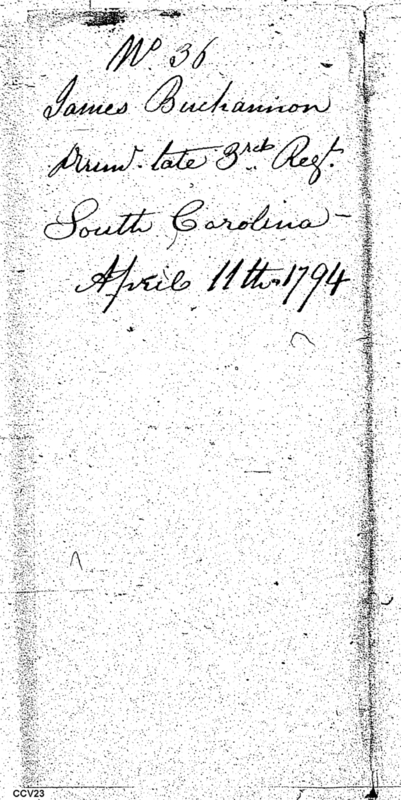 No 36
James Buchannon
late 3rd Regt.
South Carolina
April 11th 1794
CCV23